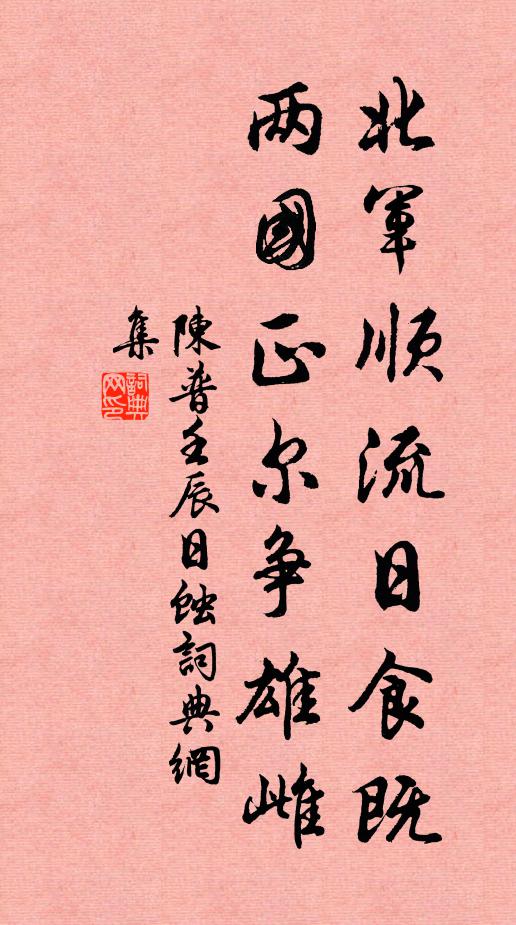 北军顺流日食既
两國正尔争雄雌
陳普壬辰日蝕詞典網
集
詞典网印